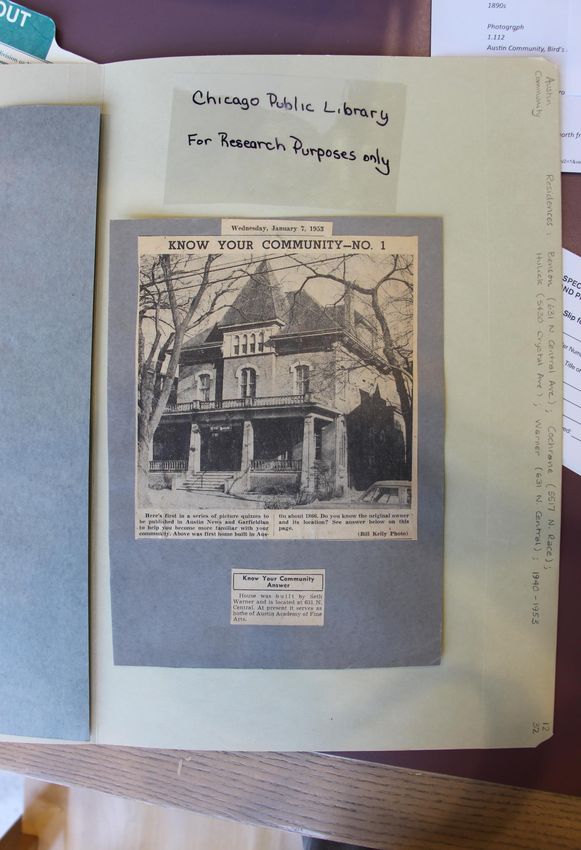 OUT
1890s
Photogrgph
1.112
Austin Community, Bird's
Chicago Public Library
For Research Purposes only
Wednesday, January 7, 1953
KNOW YOUR COMMUNITY—NO. 1
Here's first in a series of picture quizzes to
be published in Austin News and Garfieldian
to help you become more familiar with your
community. Above was first home built in Aus-
tin about 1866. Do you know the original owner
and its location? See answer below on this
page.
(Bill Kelly Photo)
Know Your Community
Answer
House was built by Seth
Warner and is located at 631 N.
Central. At present it serves as
home of Austin Academy of Fine
Arts.
Austin
Community
Residences: Benson (631 N Central Ave); Cochrane (5517 N. Race);
Hulick (5430 Crystal Ave); Warner (631 N Central); 1940-1953
12
32